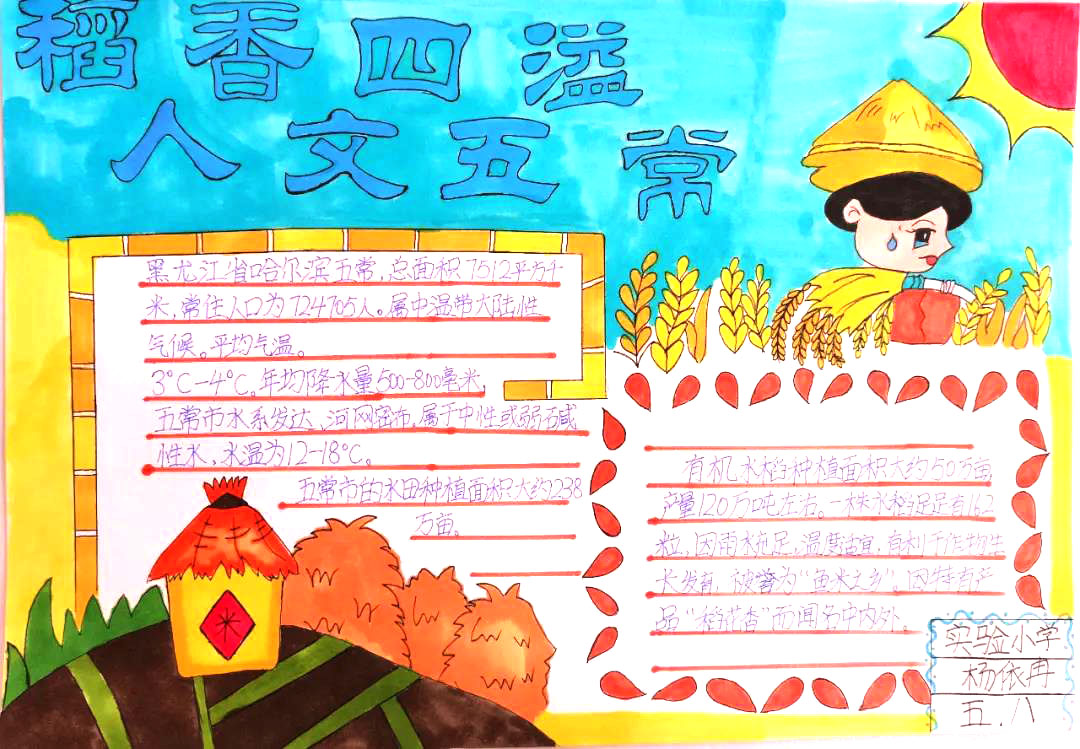 稻香四溢
人文五常
黑龙江省哈尔滨五常,总面积7512平方千
米,常住人口为724705人。属中温带大陆性
气候。平均气温。
3°C-4°C。年均降水量500-800毫米,
五常市水系发达、河网密布,属于中性或弱碱
性水,水温为12-18°C。
五常市的水田种植面积大约238
万亩。
有机水稻种植面积大约50万亩
产量120万吨左右。一株水稻足足有162
粒,因雨水充足,温度适宜,有利于作物生
长发育,被誉为“鱼米之乡”,因特有产
品“稻花香”而闻名中内外。
米
实验小学
杨依冉
五.八